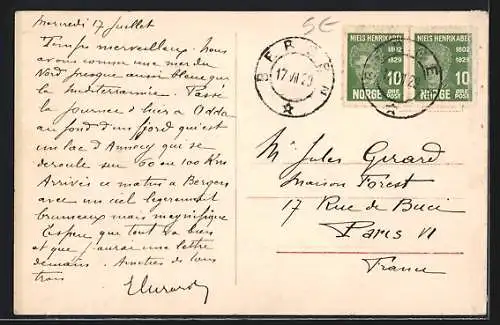 Mercredi 17 Juillet
Temps merveilleux. Nous
avons comme une mer du
Nord presque aussi bleue que
la Mediterrannée. Passé
la journée d'hier à Odda
au fond d'un fjord qui est
un lac d'Annecy qui se
deroule sur 60 ou 100 Kms
Arrivés ce matin a Bergen
avec un ciel legerement
brumeux mais magnifique
J'espere que tout va bien
et que j'aurai une lettre
demain. Amities de tous
trois
SE
BERGEN
17 VII 29
NIELS HENRIK ABEL
1802
1829
1802
1829
10
NORGE
ØRE
POST
NIELS HENRIK ABEL
1802
1829
10
NORGE
ØRE
POST
BERGEN
Mr Jules Girard
Maison Forest
17 Rue de Buci
Paris VI
France